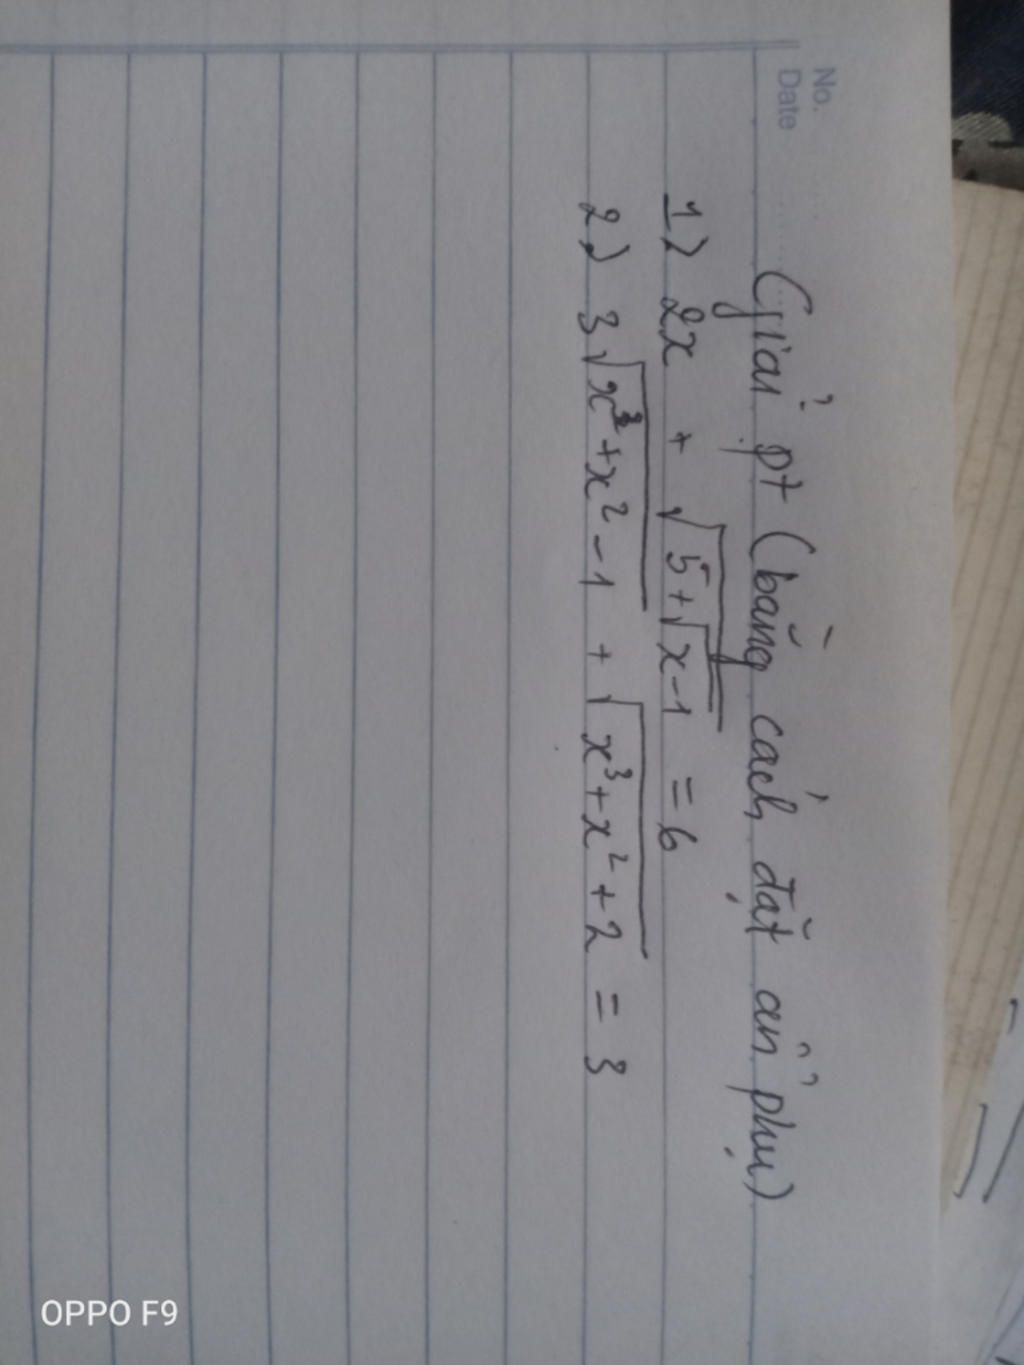 No.
Date
Giải pt (bằng cách đặt ẩn phụ)
1) 2x + √(5+√(x-1)) = 6
2) 3√(x³+x²-1) + √(x³+x²+2) = 3
OPPO F9